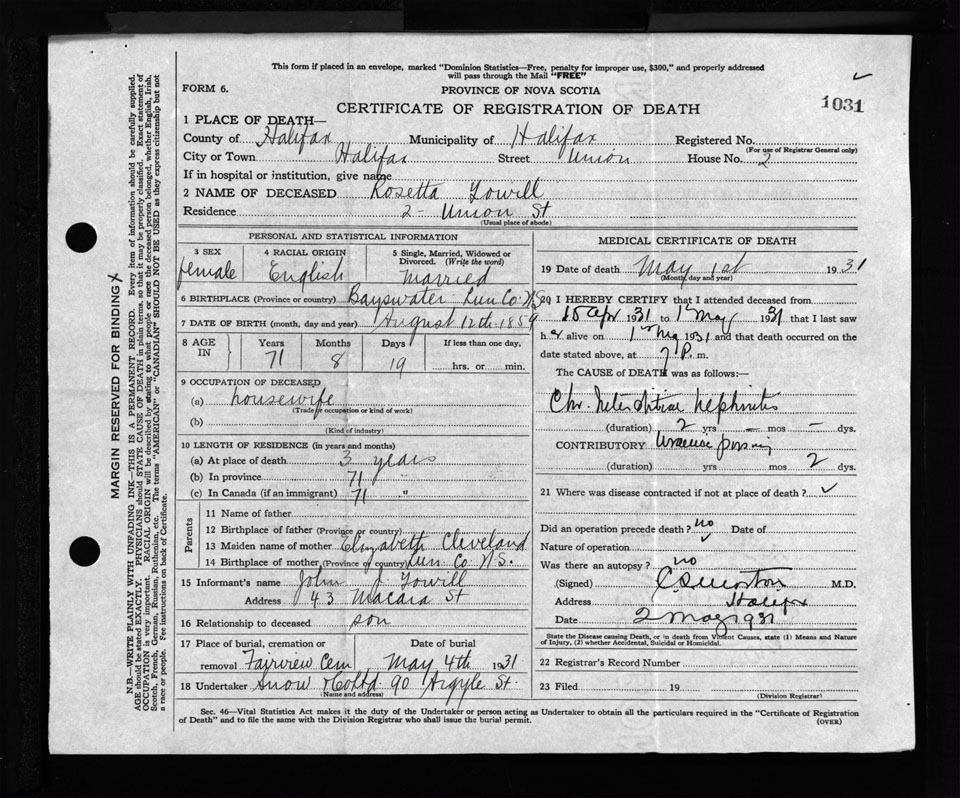 This form if placed in an envelope, marked "Dominion Statistics—Free, penalty for improper use, $300," and properly addressed
will pass through the Mail "FREE"
FORM 6.
PROVINCE OF NOVA SCOTIA
CERTIFICATE OF REGISTRATION OF DEATH
1031
1 PLACE OF DEATH—
County of Halifax Municipality of Halifax Registered No.
(For use of Registrar General only)
City or Town Halifax Street Union House No. 2
If in hospital or institution, give name
2 NAME OF DECEASED Rosetta
Residence 2 - Union St
(Usual place of abode)
PERSONAL AND STATISTICAL INFORMATION
3 SEX female
4 RACIAL ORIGIN English
5 Single, Married, Widowed or
Divorced. (Write the word)
Married
6 BIRTHPLACE (Province or country) Bayswater Lun. Co. N.S.
7 DATE OF BIRTH (month, day and year) August 12th 1859
8 AGE IN Years 71 Months 8 Days 19 If less than one day, hrs. or min.
9 OCCUPATION OF DECEASED
(a) housewife
(Trade or occupation or kind of work)
(b)
(Kind of industry)
10 LENGTH OF RESIDENCE (in years and months)
(a) At place of death 3 years
(b) In province 71 "
(c) In Canada (if an immigrant) 71 "
Parents
11 Name of father
12 Birthplace of father (Province or country)
13 Maiden name of mother Elizabeth Cleveland
14 Birthplace of mother (Province or country) Lun. Co N.S.
15 Informant's name John J
Address 43 Macara St
16 Relationship to deceased son
17 Place of burial, cremation or Date of burial
removal Fairview Cem May 4th 1931
18 Undertaker Snow & Co Ltd 90 Argyle St.
(Name and address)
MEDICAL CERTIFICATE OF DEATH
19 Date of death May 1st 1931
(Month, day and year)
20 I HEREBY CERTIFY that I attended deceased from
15 Apr 1931 to 1 May 1931 that I last saw
her alive on 1 May 1931 and that death occurred on the
date stated above, at 7 P. m.
The CAUSE of DEATH was as follows:—
Chr. nephritis
(duration) 2 yrs — mos — dys.
CONTRIBUTORY
(duration) yrs mos 2 dys.
21 Where was disease contracted if not at place of death?
Did an operation precede death? no Date of
Nature of operation
Was there an autopsy? no
(Signed) M.D.
Address Halifax
Date 2 May 1931
State the Disease causing Death, or in death from Violent Causes, state (1) Means and Nature
of Injury, (2) whether Accidental, Suicidal or Homicidal.
22 Registrar's Record Number
23 Filed 19
(Division Registrar)
Sec. 46—Vital Statistics Act makes it the duty of the Undertaker or person acting as Undertaker to obtain all the particulars required in the "Certificate of Registration
of Death" and to file the same with the Division Registrar who shall issue the burial permit.
(OVER)
MARGIN RESERVED FOR BINDING
N.B.—WRITE PLAINLY WITH UNFADING INK—THIS IS A PERMANENT RECORD. Every item of information should be carefully supplied.
AGE should be stated EXACTLY. PHYSICIANS should STATE CAUSE OF DEATH in plain terms, so that it may be properly classified. Exact statement of
OCCUPATION is very important. RACIAL ORIGIN will be described by stating to what people or race the deceased person belonged, whether English, Irish,
Scotch, French, German, Russian, Ruthenian, etc. The terms "AMERICAN" or "CANADIAN" SHOULD NOT BE USED as they express citizenship but not
a race or people. Fee instructions on back of Certificate.